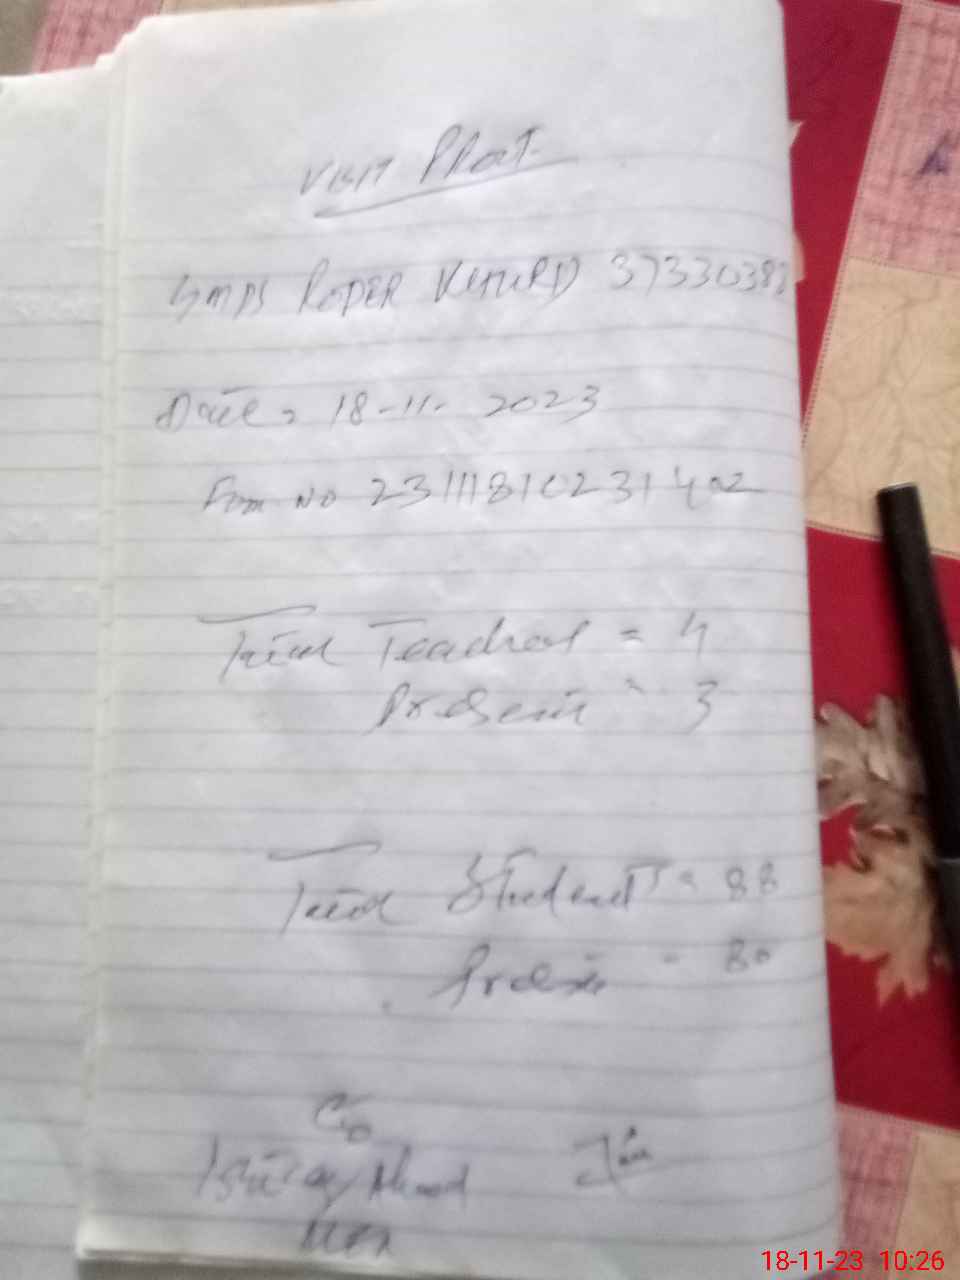 VISIT
GMPS ROPER KHURD 3733038
Date = 18-11-2023
Form No 23111810231402
Total Teachers = 4
Present = 3
Total Students = 88
Present = 80
Ahmad
18-11-23 10:26